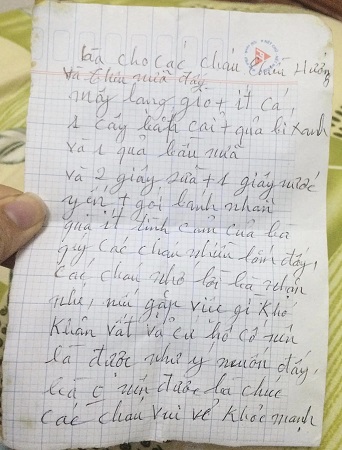 bà cho các cháu cháu Hướng
và thìa nữa đấy
mấy lạng giò + ít cá
1 cây bắp cải + quả bí xanh
và 1 quả bầu nữa
và 2 giây sữa + 1 giây nước
yến + gói bánh nhãn
quà ít tình cảm của bà
quy các cháu nhiều lắm đấy,
các cháu nhớ lời bà nhận
nhé, mà gặp việc gì khó
khăn vất vả cứ hô cố nên
là được như ý muốn đấy,
các cháu vui vẻ khỏe mạnh